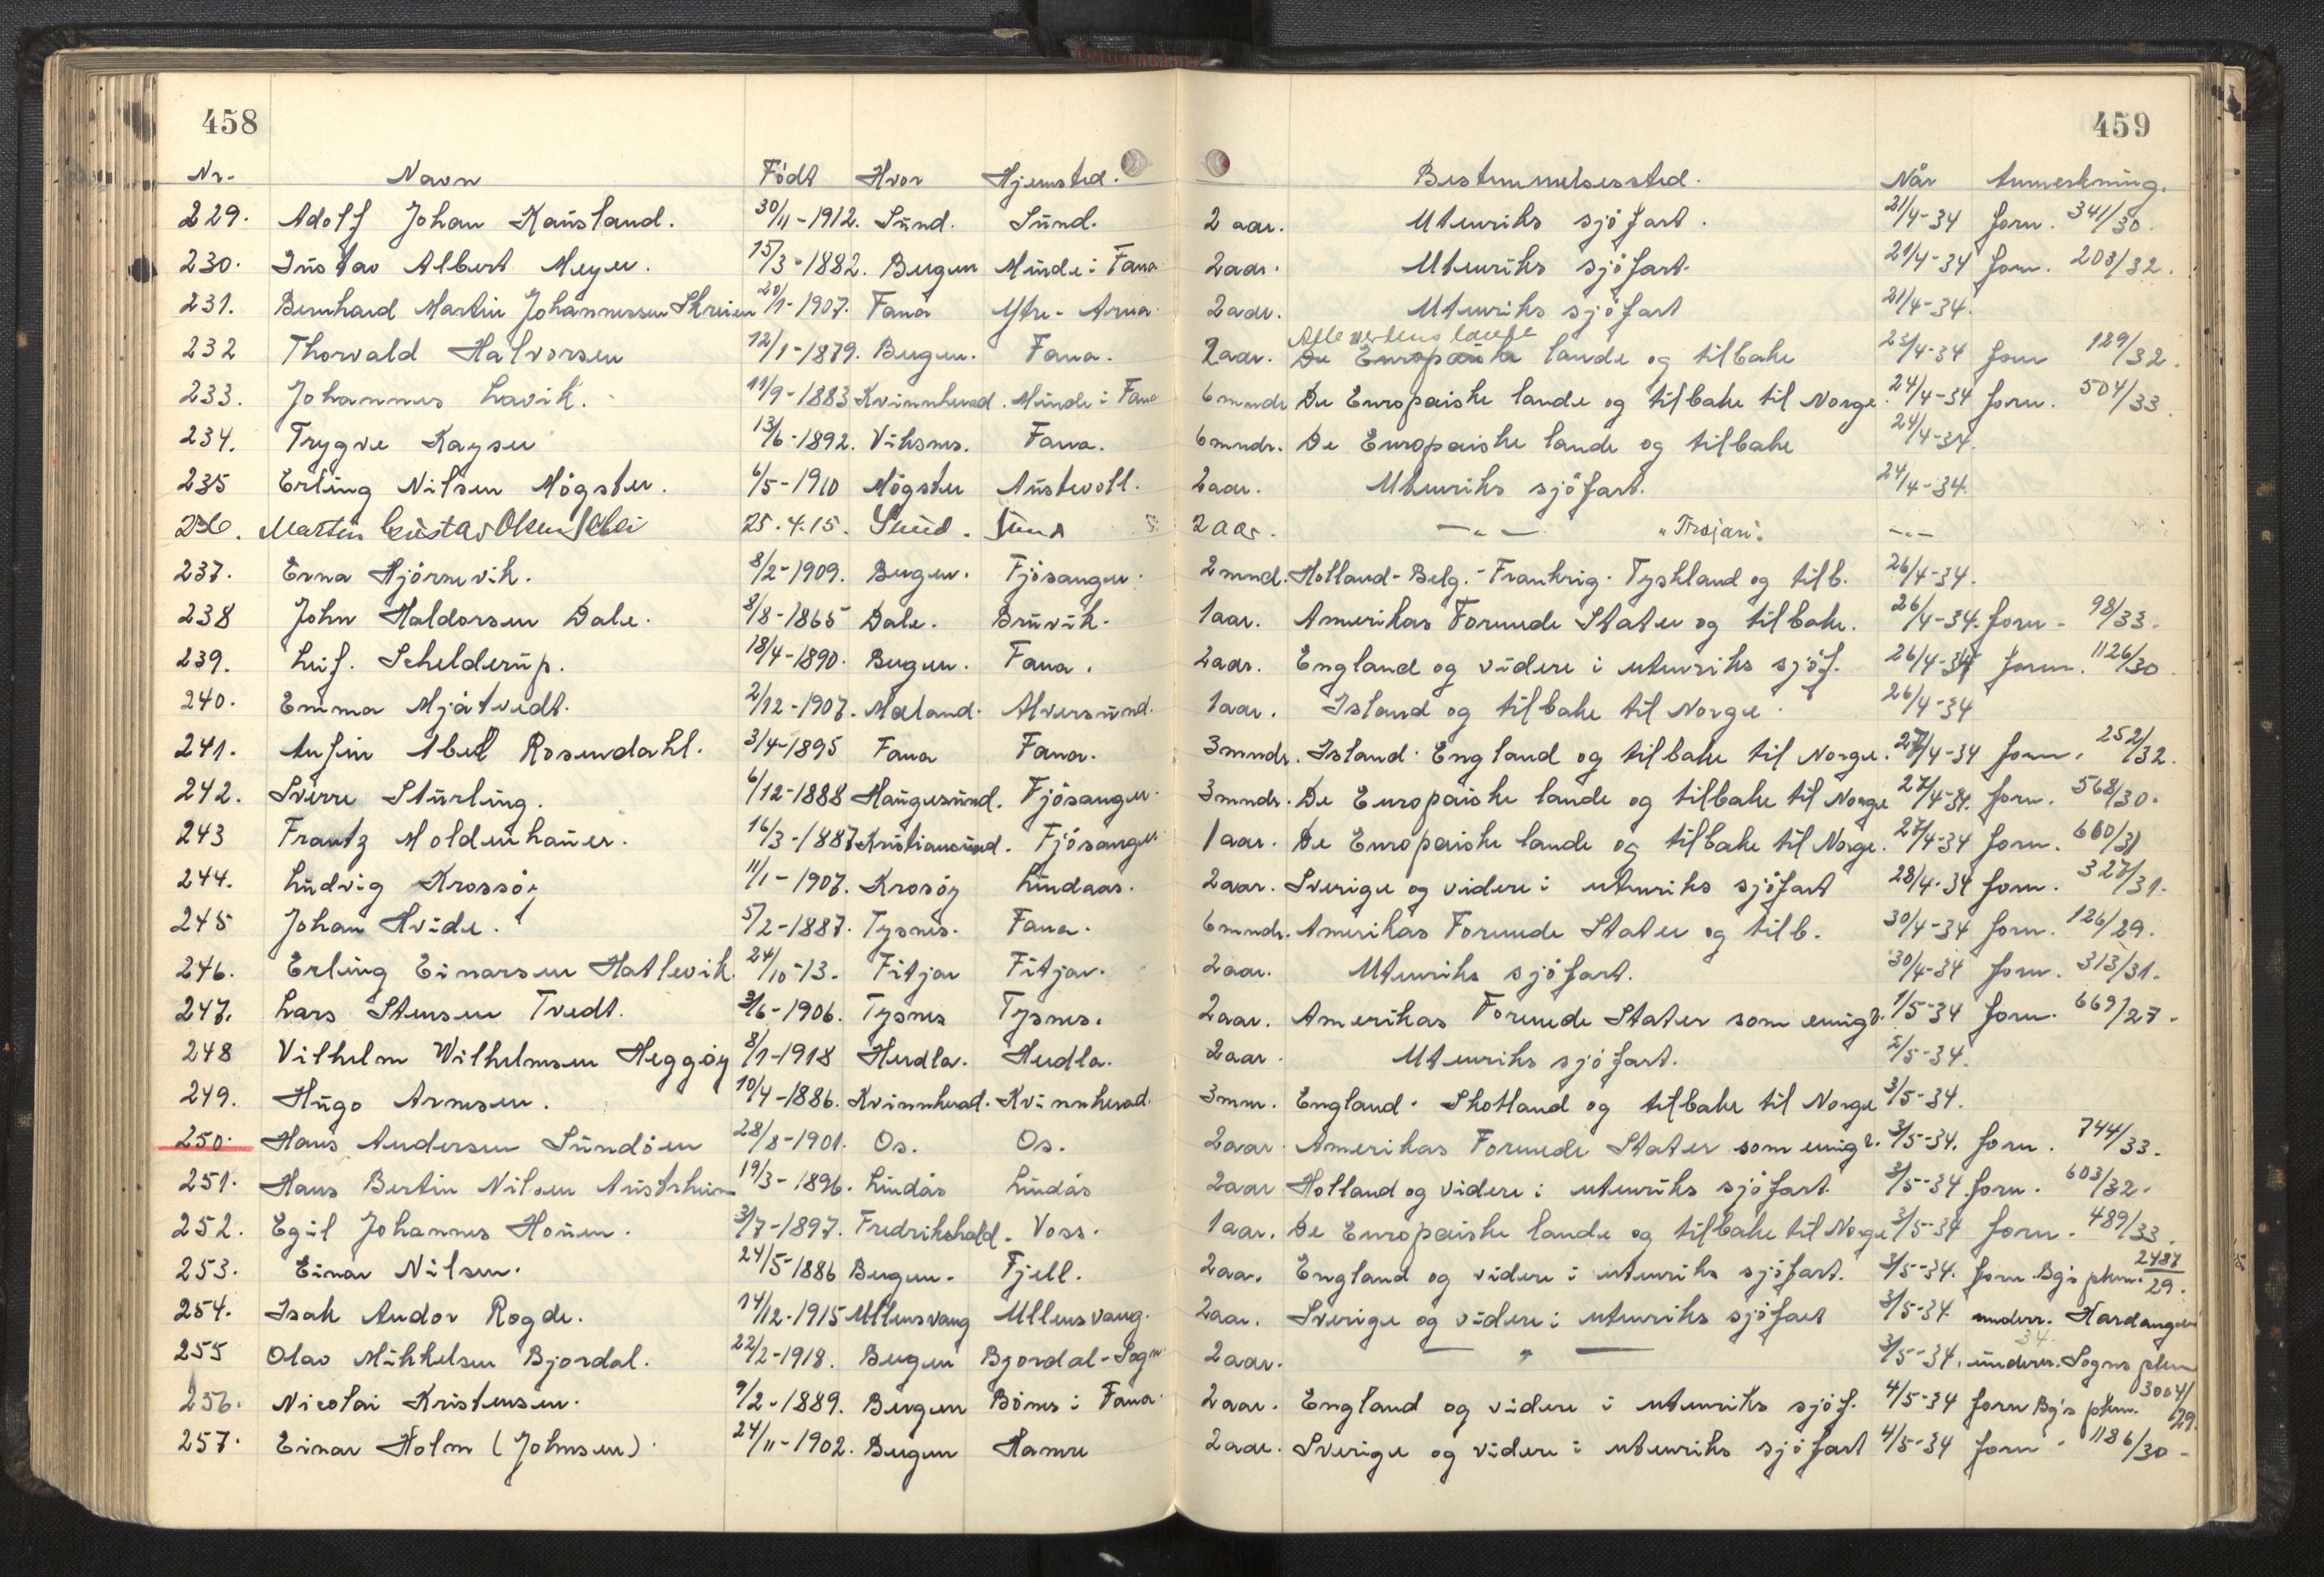 458
459
Nr. Navn Födt Hvor Hjemsted. Bestemmelsessted. Når Anmerkning.
229. Adolf Johan Kausland. 30/11-1912. Sund. Sund. 2 aar. Utenriks sjöfart. 21/4-34 forn. 341/30.
230. Gustav Albert Meyer. 15/3-1882. Bergen Minde i Fana 2 aar. Utenriks sjöfart. 21/4-34 forn. 203/32.
231. Bernhard Martin Johannessen Skreien 20/1-1907. Fana Ytre-Arna. 2 aar. Utenriks sjöfart 21/4-34.
Alle verdens lande
232 Thorvald Halvorsen 12/1-1879. Bergen. Fana. 2 aar. De Europæiske lande og tilbake 23/4-34 forn 189/32.
233. Johannes Lavik. 11/9-1883 Kvinnherad. Minde i Fana 6 mndr De Europæiske lande og tilbake til Norge. 24/4-34 forn. 504/33.
234. Trygve Kayser 13/6-1892. Viksnes. Fana. 6 mndr. De Europæiske lande og tilbake 24/4-34.
235 Erling Nilsen Mögster. 6/5-1910 Mögster Austevoll. 2 aar. Utenriks sjöfart. 24/4-34.
236. Martin Gustav Olsen 25.4.15. Sund. Sund 2 aar. -"- "Trojan". -"-
237. Erna Hjörnevik. 8/2-1909. Bergen. Fjösanger. 2 mnd. Holland-Belg.-Frankrig-Tyskland og tilb. 26/4-34.
238 John Haldorsen Dale. 8/8-1865 Dale. Bruvik. 1 aar. Amerikas Forenede Stater og tilbake. 26/4-34. forn. 98/33.
239. Leif. Schelderup. 18/4-1890. Bergen. Fana. 2 aar. England og videre i utenriks sjöf. 26/4-34 forn. 1126/30.
240. Emma Mjåtvedt. 2/12-1907. Mæland. Alversund. 1 aar. Island og tilbake til Norge. 26/4-34
241. Anfin Abel Rosendahl. 3/4-1895 Fana Fana. 3 mndr. Island. England og tilbake til Norge. 27/4-34 forn. 252/32.
242. Sverre Sturling. 6/12-1888 Haugesund. Fjösanger. 3 mndr. De Europæiske lande og tilbake til Norge 27/4-34. forn. 568/30.
243 Frantz Moldenhauer. 16/3-1887 Kristiansund. Fjösanger. 1 aar. De Europæiske lande og tilbake til Norge. 27/4-34 forn. 660/31
244. Ludvig Krossöy 11/1-1907. Krosöy Lindaas. 2 aar. Sverige og videre i utenriks sjöfart 28/4-34 forn. 327/31.
245 Johan Hvide. 5/2-1887. Tysnes. Fana. 6 mndr. Amerikas Forenede Stater og tilb. 30/4-34 forn. 126/29.
246. Erling Einarsen Hatlevik. 24/10-13. Fitjar Fitjar. 2 aar. Utenriks sjöfart. 30/4-34 forn. 313/31.
247. Lars Stensen Tvedt. 3/6-1906. Tysnes Tysnes. 2 aar. Amerikas Forenede Stater som emigr. 1/5-34 forn. 669/27.
248 Vilhelm Wilhelmsen Heggöy 8/1-1918 Herdla. Herdla. 2 aar. Utenriks sjöfart. 2/5-34.
249. Hugo Arnesen. 10/4-1886. Kvinnherad. Kvinnherad. 3 mnd. England. Skotland og tilbake til Norge 3/5-34.
250. Hans Andersen Sundöen 28/8-1901. Os. Os. 2 aar. Amerikas Forenede Stater som emigr. 3/5-34. forn. 744/33.
251. Hans Bertin Nilsen Austrheim 19/3-1896. Lindås Lindås 2 aar Holland og videre i utenriks sjöfart. 3/5-34 forn. 603/32.
252. Egil Johannes Honen. 3/7-1897. Fredrikshald. Voss. 1 aar. De Europæiske lande og tilbake til Norge 3/5-34 forn. 489/33.
253. Einar Nilsen. 24/5-1886 Bergen. Fjell. 2 aar. England og videre i utenriks sjöfart. 3/5-34. forn. Bg's pkm. 2487/29.
254. Isak Andor Rogde. 14/12-1915 Ullensvang Ullensvang. 2 aar. Sverige og videre i utenriks sjöfart 3/5-34 underr. Hardanger
255 Olav Mikkelsen Bjordal. 22/2-1918. Bergen Bjordal-Sogn. 2 aar. -"- 3/5-34. underr. Sogns pkm
256. Nicolai Kristensen. 9/2-1889. Bergen Bönes i Fana. 2 aar. England og videre i utenriks sjöf. 4/5-34 forn Bg's pkm. 3004/29.
257. Einar Holm (Johnsen). 24/11-1902. Bergen Hamre 2 aar. Sverige og videre i utenriks sjöfart 4/5-34 forn. 1186/30.